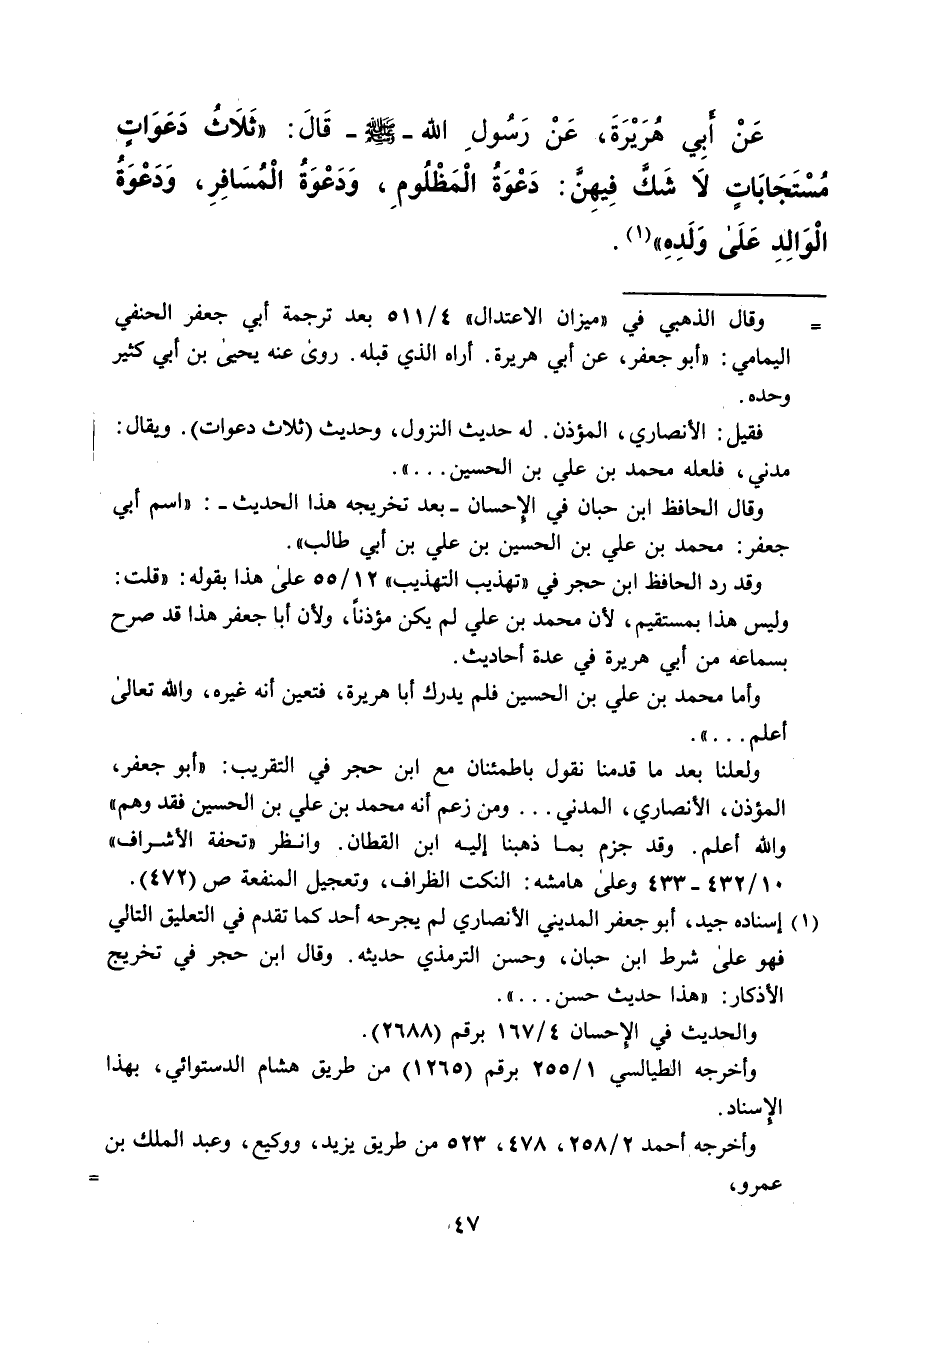 عَنْ أَبِي هُرَيْرَةَ، عَنْ رَسُولِ الله - ﷺ - قَالَ: «ثَلَاثُ دَعَوَاتٍ
مُسْتَجَابَاتٍ لَا شَكَّ فِيهِنَّ: دَعْوَةُ الْمَظْلُومِ، وَدَعْوَةُ الْمُسَافِرِ، وَدَعْوَةُ
الْوَالِدِ عَلَىٰ وَلَدِهِ»(١).
= وقال الذهبي في «ميزان الاعتدال» ٥١١/٤ بعد ترجمة أبي جعفر الحنفي
اليمامي: «أبو جعفر، عن أبي هريرة. أراه الذي قبله. روىٰ عنه يحيىٰ بن أبي كثير
وحده.
فقيل: الأنصاري، المؤذن. له حديث النزول، وحديث (ثلاث دعوات). ويقال:
مدني، فلعله محمد بن علي بن الحسين...».
وقال الحافظ ابن حبان في الإحسان - بعد تخريجه هذا الحديث -: «اسم أبي
جعفر: محمد بن علي بن الحسين بن علي بن أبي طالب».
وقد رد الحافظ ابن حجر في «تهذيب التهذيب» ٥٥/١٢ علىٰ هذا بقوله: «قلت:
وليس هذا بمستقيم، لأن محمد بن علي لم يكن مؤذناً، ولأن أبا جعفر هذا قد صرح
بسماعه من أبي هريرة في عدة أحاديث.
وأما محمد بن علي بن الحسين فلم يدرك أبا هريرة، فتعين أنه غيره، والله تعالىٰ
أعلم...».
ولعلنا بعد ما قدمنا نقول باطمئنان مع ابن حجر في التقريب: «أبو جعفر،
المؤذن، الأنصاري، المدني... ومن زعم أنه محمد بن علي بن الحسين فقد وهم»
والله أعلم. وقد جزم بما ذهبنا إليه ابن القطان. وانظر «تحفة الأشراف»
٤٣٢/١٠ - ٤٣٣ وعلىٰ هامشه: النكت الظراف، وتعجيل المنفعة ص (٤٧٢).
(١) إسناده جيد، أبو جعفر المديني الأنصاري لم يجرحه أحد كما تقدم في التعليق التالي
فهو علىٰ شرط ابن حبان، وحسن الترمذي حديثه. وقال ابن حجر في تخريج
الأذكار: «هذا حديث حسن...».
والحديث في الإحسان ١٦٧/٤ برقم (٢٦٨٨).
وأخرجه الطيالسي ٢٥٥/١ برقم (١٢٦٥) من طريق هشام الدستوائي، بهذا
الإسناد.
وأخرجه أحمد ٢٥٨/٢، ٤٧٨، ٥٢٣ من طريق يزيد، ووكيع، وعبد الملك بن
عمرو، =
٤٧